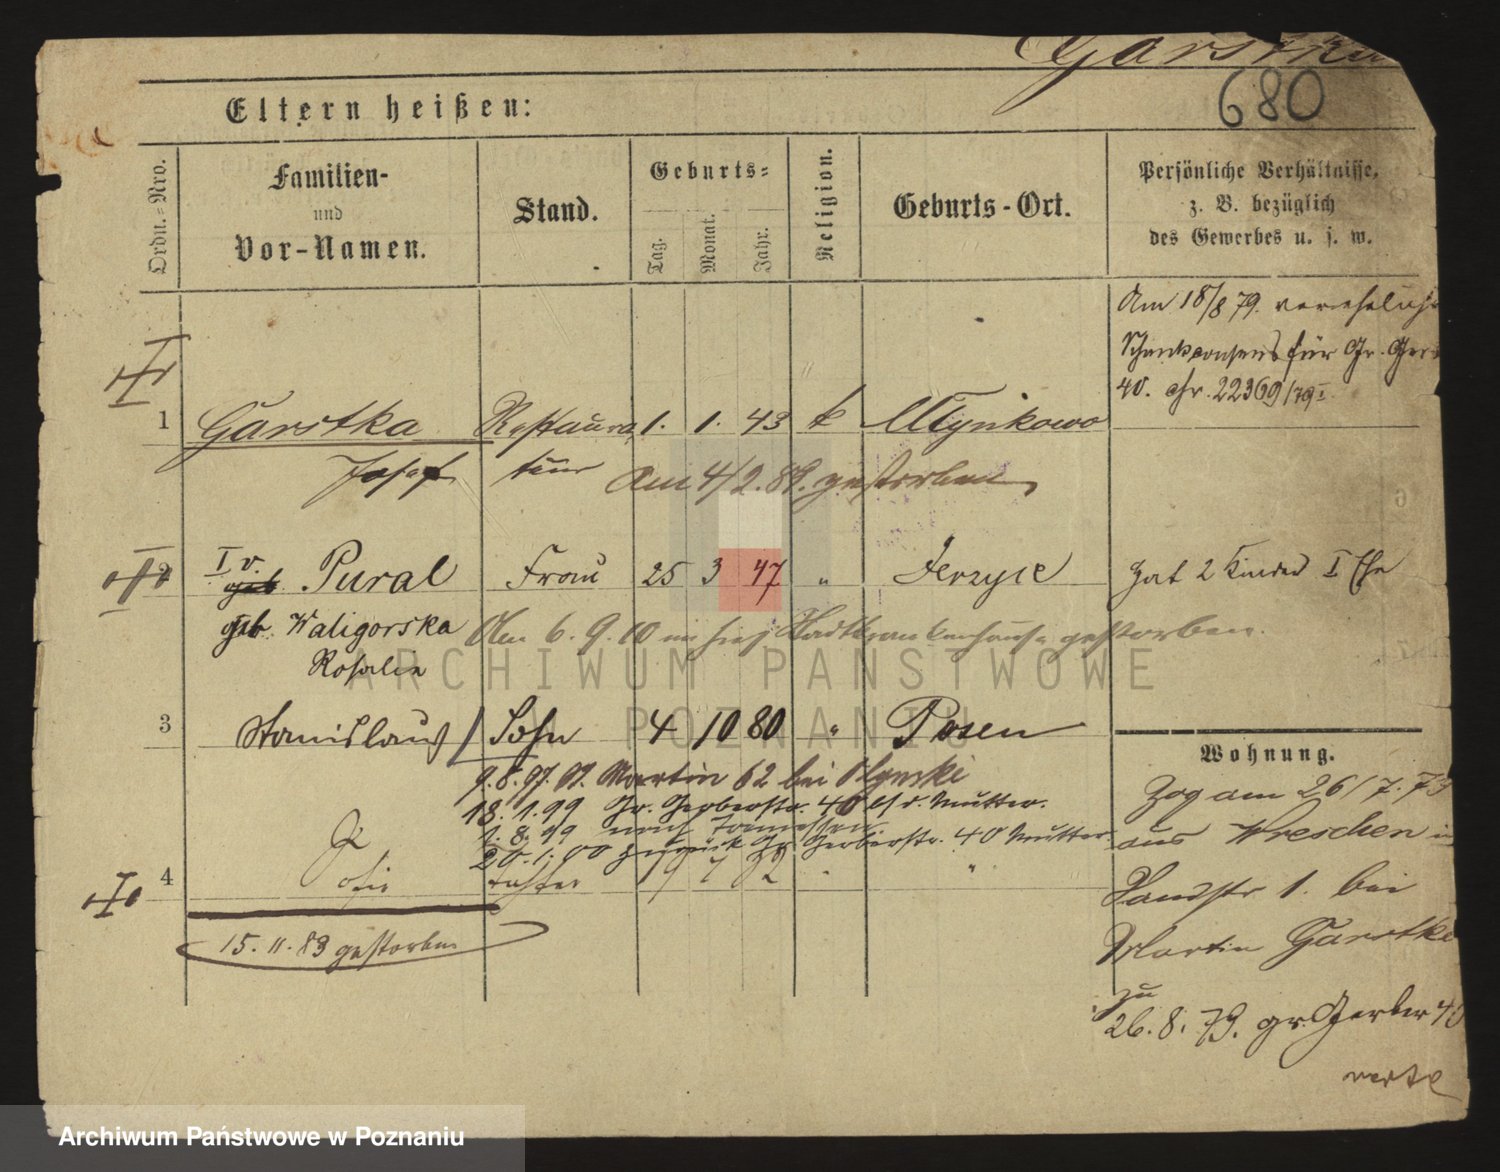 Garstka
680
Eltern heißen:
Ordn.-Nro.
Familien-
und
Vor-Namen.
Stand.
Geburts-
Tag.
Monat.
Jahr.
Religion.
Geburts-Ort.
Persönliche Verhältnisse,
z. B. bezüglich
des Gewerbes u. s. w.
Am 18/8 79.
Schankconsens für Gr. Gerb
40. 22369/79 I.
1 Garstka Restaura 1. 1. 43 k Mlynkowo
Josef teur Am 4/2. 89. gestorben
2 I v. geb. Pural Frau 25 3 47 " Jerzyce hat 2 Kinder I Ehe
geb. Waligorska Am 6. 9. 10 im hies. Stadtkrankenhause gestorben.
Rosalie
3 Stanislaus Sohn 4 10 80 " Posen
Wohnung.
9. 8. 97. Martin 62 bei
18. 1. 99 Gr. Gerberstr. 40 Mutter.
1. 8. 99 nach
20. 1. 00 zurück Gr. Gerberstr. 40 Mutter.
4 Tochter 19 7 82 " "
15. 11. 83 gestorben
Zog am 26/7. 79
aus Wreschen
Sandstr 1. bei
Martin Garstka
zu
26. 8. 79. gr. Gerber 40
verte
ARCHIWUM PAŃSTWOWE
W POZNANIU
Archiwum Państwowe w Poznaniu